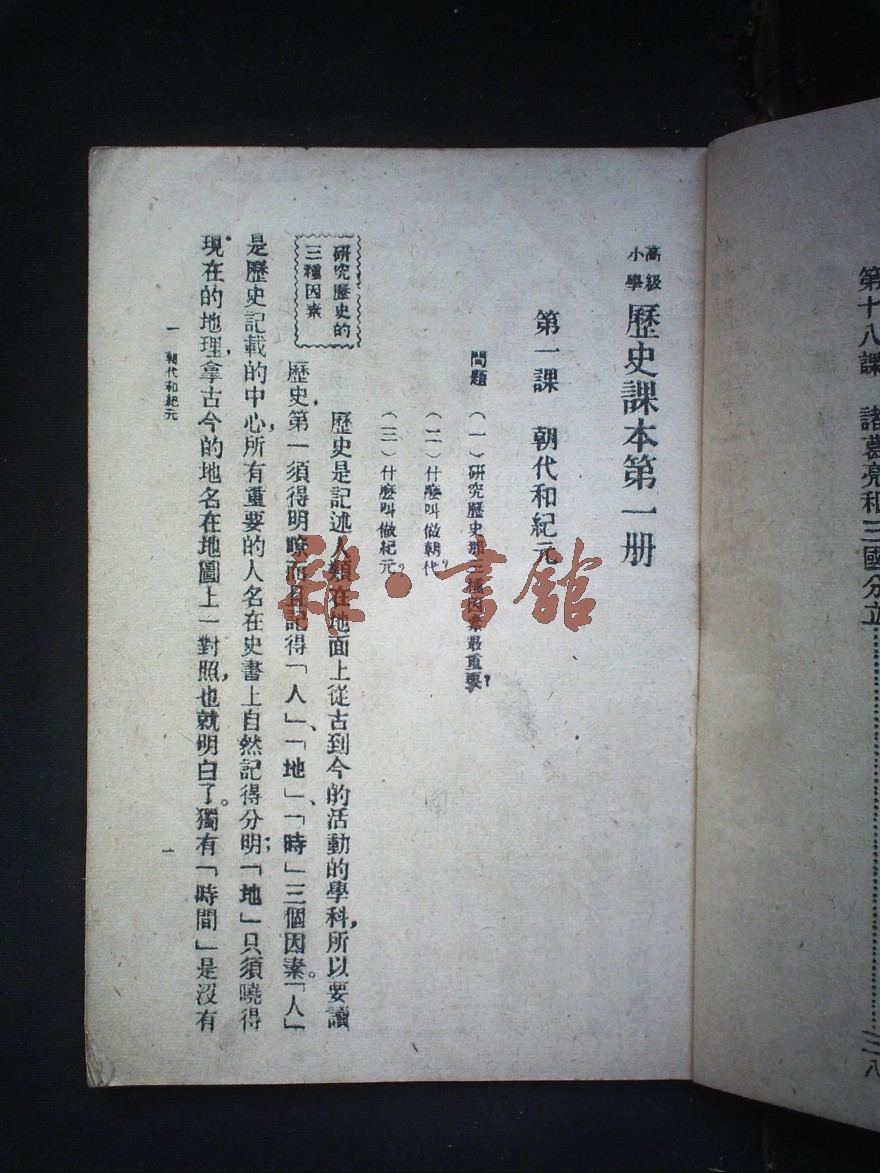 第十八課　諸葛亮和三國分立……………二八
高級
小學
歷史課本第一册
第一課　朝代和紀元
問題　（一）研究歷史那三種因素最重要？
（二）什麽叫做朝代？
（三）什麽叫做紀元？
研究歷史的
三種因素
歷史是記述人類在地面上從古到今的活動的學科，所以要讀
歷史，第一須得明瞭而且記得「人」、「地」、「時」三個因素。「人」
是歷史記載的中心，所有重要的人名在史書上自然記得分明；「地」只須曉得
現在的地理，拿古今的地名在地圖上一對照，也就明白了。獨有「時間」是沒有
一　朝代和紀元
一
雜·書館